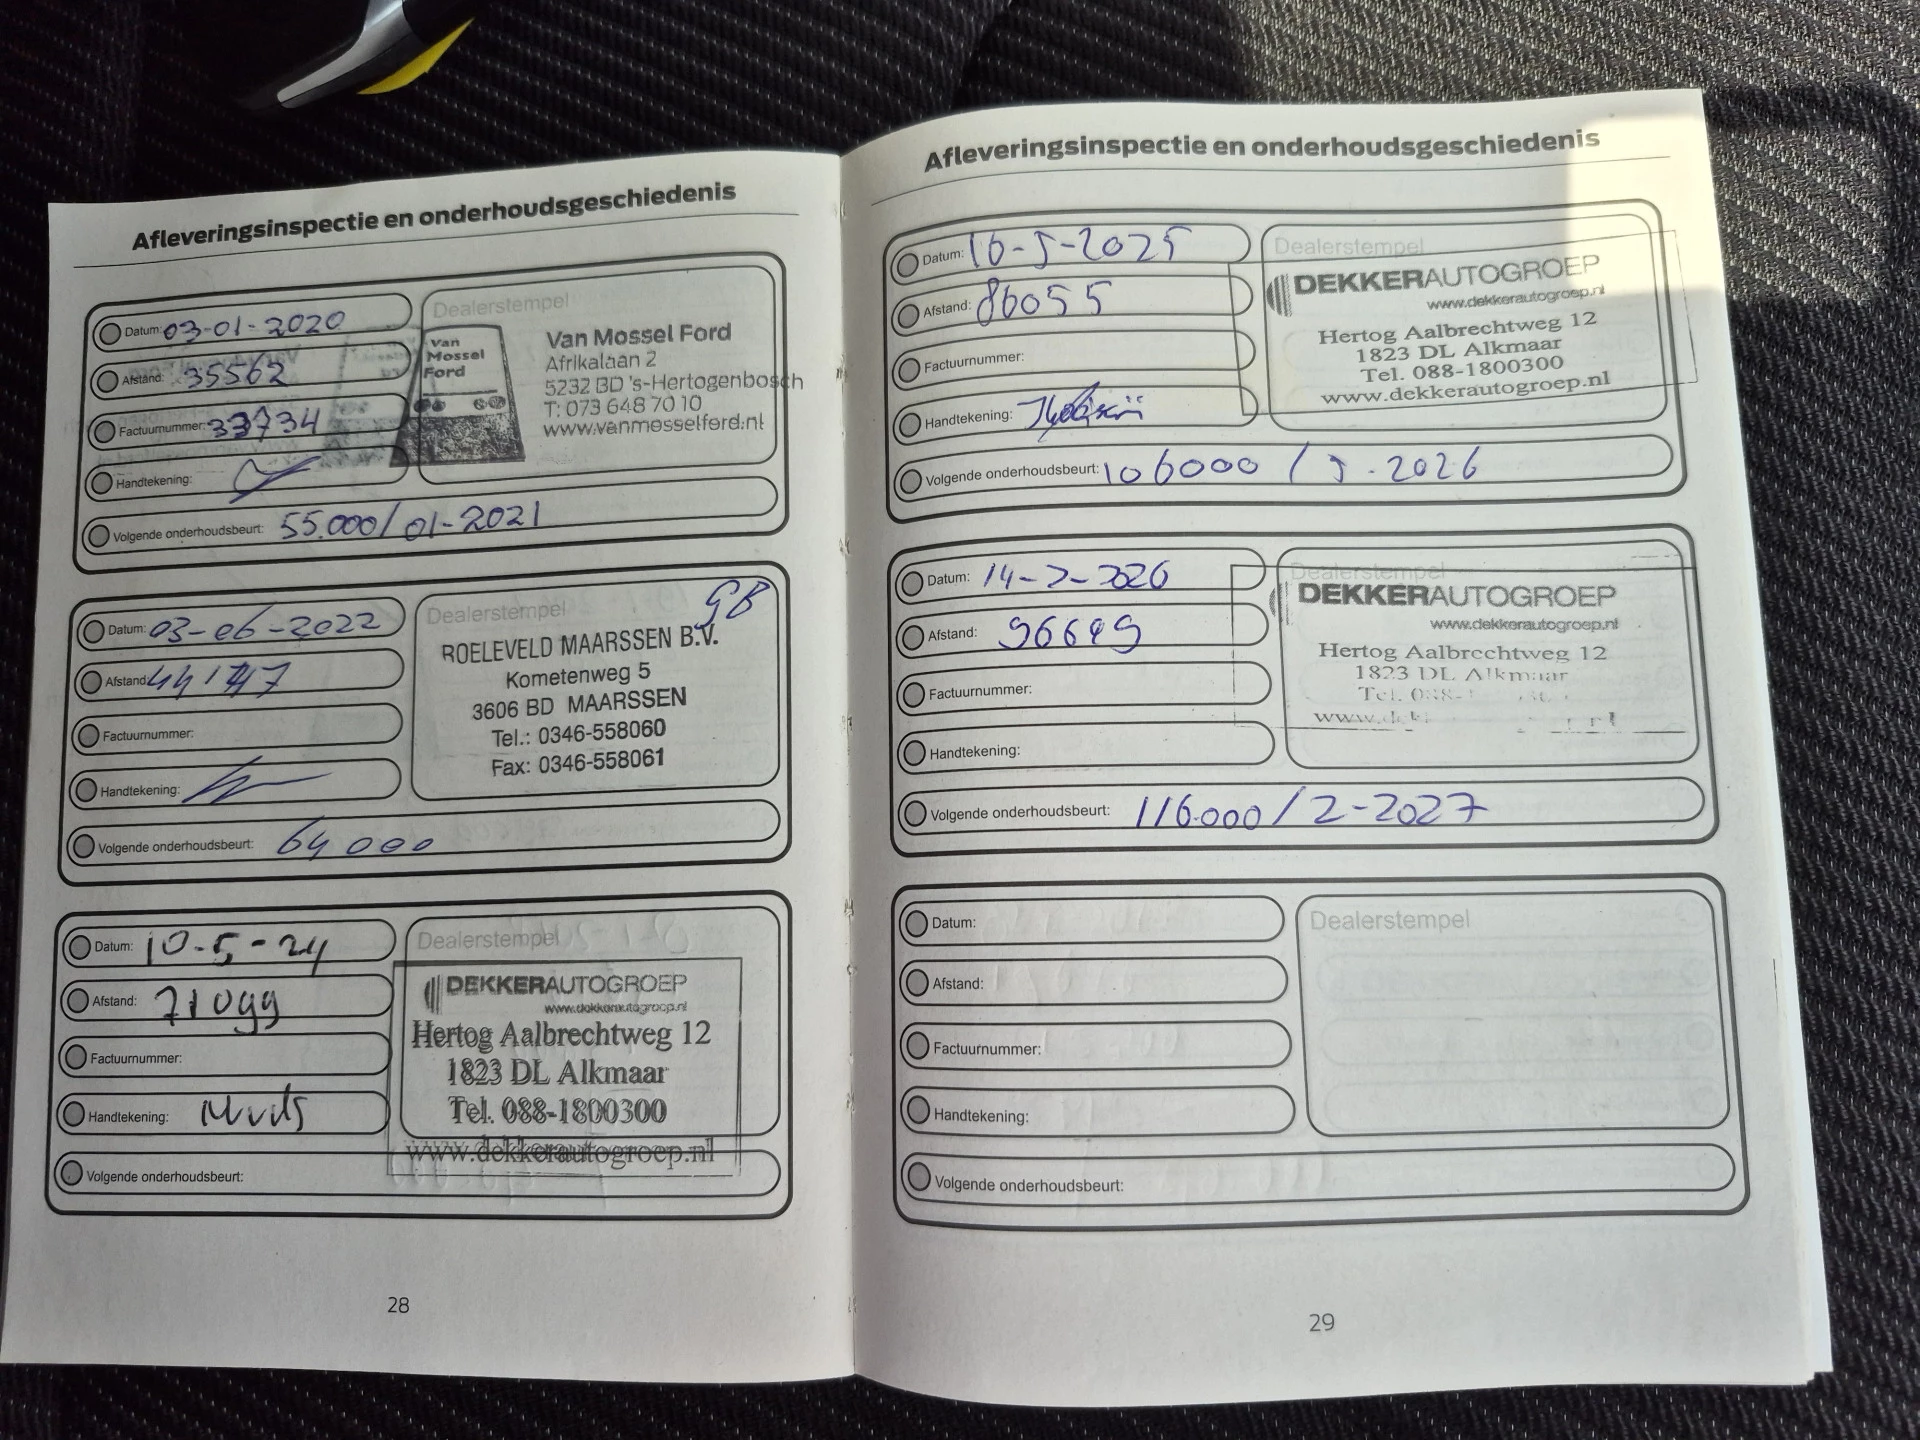 Afleveringsinspectie en onderhoudsgeschiedenis
Datum: 03-01-2020
Afstand: 35562
Factuurnummer: 33734
Handtekening:
Volgende onderhoudsbeurt: 55.000/01-2021
Dealerstempel
Van
Mossel
Ford
Van Mossel Ford
Afrikalaan 2
5232 BD 's-Hertogenbosch
T: 073 648 70 10
www.vanmosselford.nl
Datum: 03-06-2022
Afstand:
Factuurnummer:
Handtekening:
Volgende onderhoudsbeurt: 64000
Dealerstempel
GB
ROELEVELD MAARSSEN B.V.
Kometenweg 5
3606 BD MAARSSEN
Tel.: 0346-558060
Fax: 0346-558061
Datum: 10-5-24
Afstand: 71099
Factuurnummer:
Handtekening:
Volgende onderhoudsbeurt:
Dealerstempel
DEKKERAUTOGROEP
www.dekkerautogroep.nl
Hertog Aalbrechtweg 12
1823 DL Alkmaar
Tel. 088-1800300
www.dekkerautogroep.nl
28
Afleveringsinspectie en onderhoudsgeschiedenis
Datum: 16-5-2025
Afstand: 86055
Factuurnummer:
Handtekening:
Volgende onderhoudsbeurt: 106000 / 5-2026
Dealerstempel
DEKKERAUTOGROEP
www.dekkerautogroep.nl
Hertog Aalbrechtweg 12
1823 DL Alkmaar
Tel. 088-1800300
www.dekkerautogroep.nl
Datum: 14-2-2026
Afstand: 96649
Factuurnummer:
Handtekening:
Volgende onderhoudsbeurt: 116.000 / 2-2027
Dealerstempel
DEKKERAUTOGROEP
www.dekkerautogroep.nl
Hertog Aalbrechtweg 12
1823 DL Alkmaar
Tel.
Datum:
Afstand:
Factuurnummer:
Handtekening:
Volgende onderhoudsbeurt:
Dealerstempel
29